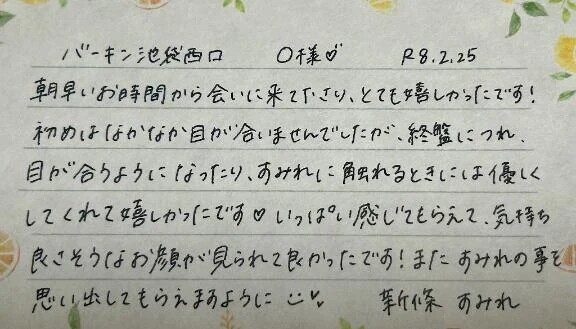 バーキン池袋西口 O様♡ R8.2.25
朝早いお時間から会いに来て下さり、とても嬉しかったです!
初めはなかなか目が合いませんでしたが、終盤につれ、
目が合うようになったり、すみれに触れるときには優しく
してくれて嬉しかったです♡ いっぱい感じてもらえて、気持ち
良さそうなお顔が見られて良かったです!また すみれの事を
思い出してもらえますように 新條 すみれ